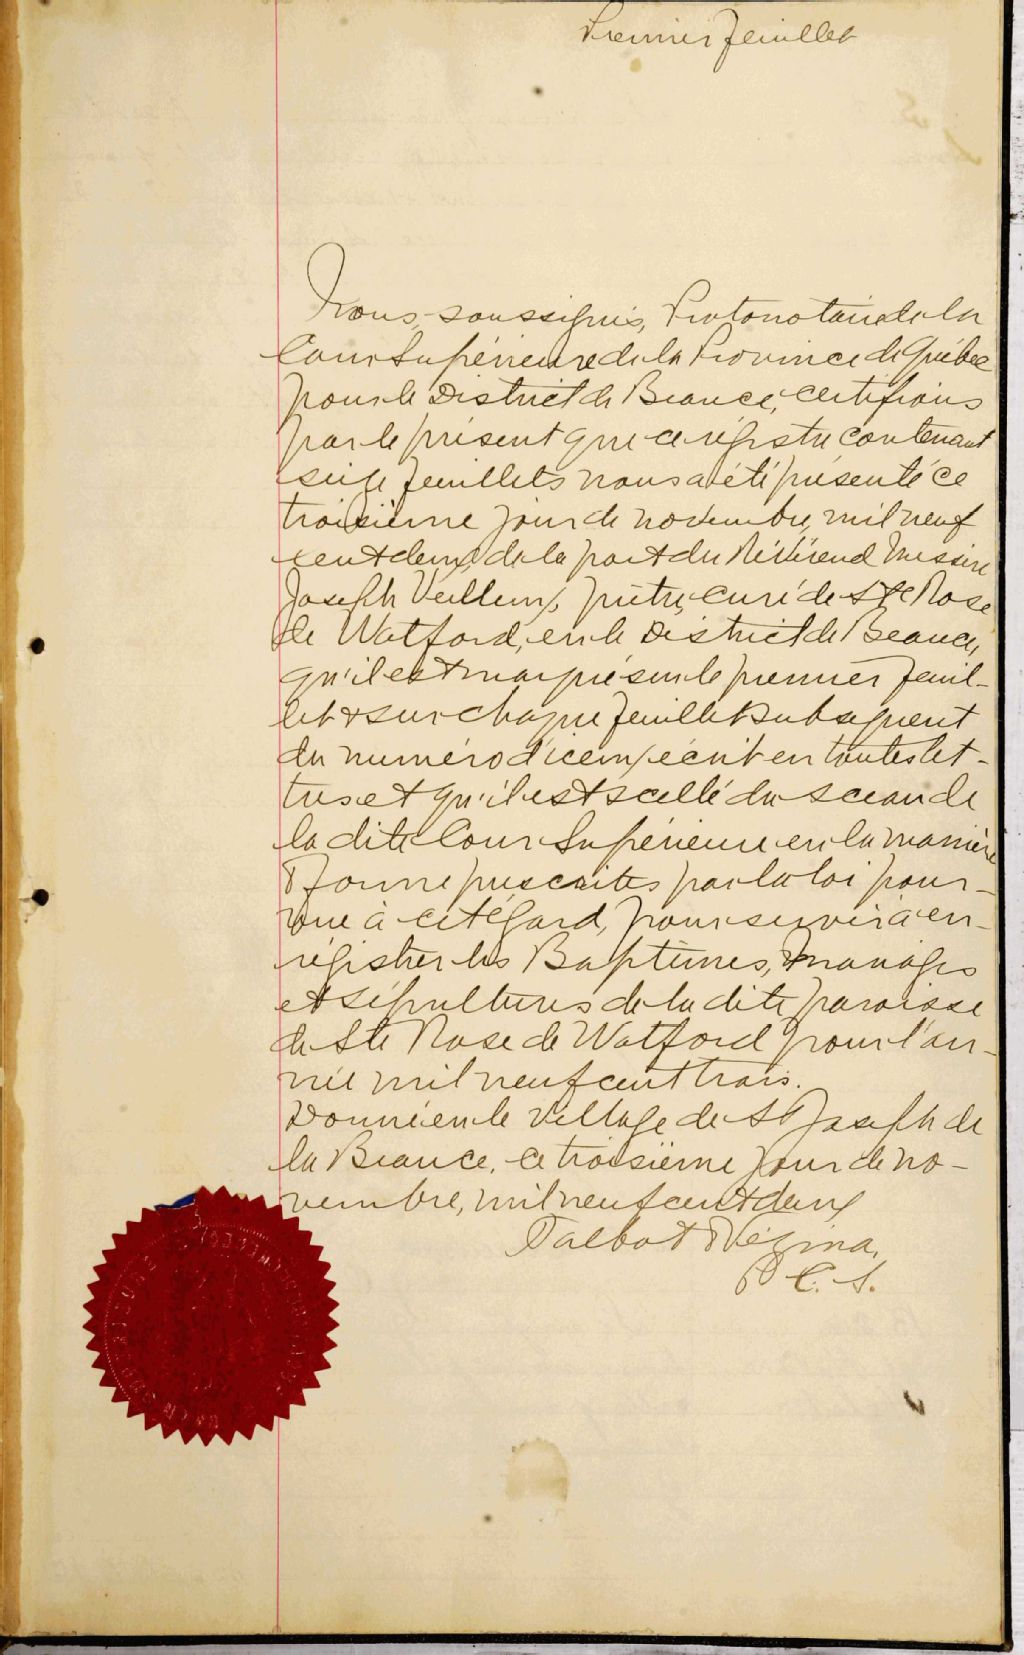 Premier feuillet
Nous, soussignés, Protonotaire de la
Cour Supérieure de la Province de Québec
pour le District de Beauce, certifions
par le présent que ce régistre contenant
seize feuillets nous a été présenté ce
troisième jour de novembre, mil neuf
cent deux, de la part du Révérend Messire
Joseph Veilleux, prêtre, curé de Ste Rose
de Watford, en le District de Beauce,
qu'il est marqué sur le premier feuil-
let & sur chaque feuillet subséquent
du numéro d'iceux, écrit en toutes let-
tres et qu'il est scellé du sceau de
la dite Cour Supérieure en la manière
& forme prescrites par la loi pour-
vue à cet égard, pour servir à en-
régistrer les Baptêmes, Mariages
et Sépultures de la dite paroisse
de Ste Rose de Watford pour l'an-
née mil neuf cent trois.
Donné en le Village de St Joseph de
la Beauce, ce troisième jour de no-
vembre, mil neuf cent deux
Talbot & Vézina,
P. C. S.